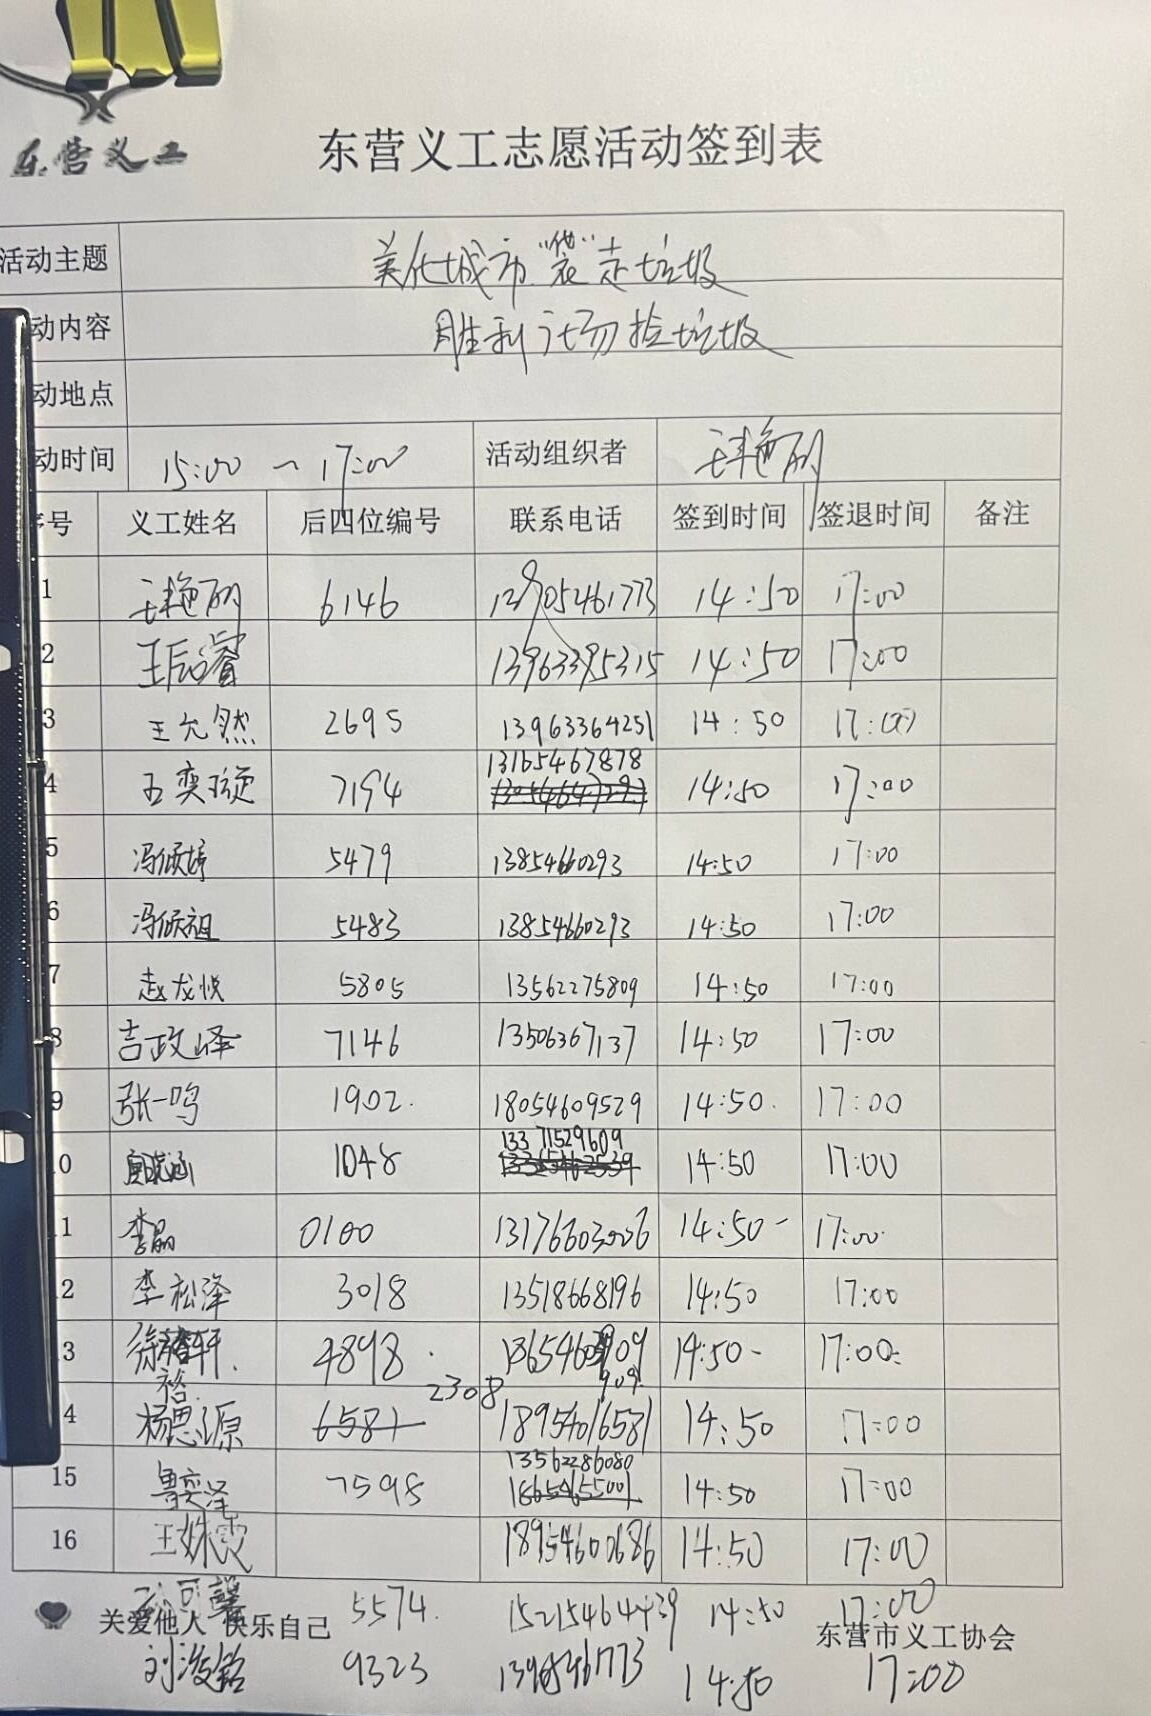 东营义工
东营义工志愿活动签到表
活动主题 美化城市"袋"走垃圾
动内容 胜利广场捡垃圾
动地点
动时间 15:00 ~ 17:00 活动组织者 王艳丽
序号 义工姓名 后四位编号 联系电话 签到时间 签退时间 备注
1 王艳丽 6146 13905461773 14:50 17:00
2 王后睿 13963395315 14:50 17:00
3 王允然 2695 13963364251 14:50 17:00
13165467878
4 王奕璇 7194 14:50 17:00
5 冯倾婷 5479 13854660293 14:50 17:00
6 冯倾祖 5483 13854660293 14:50 17:00
7 赵龙悦 5805 13562275809 14:50 17:00
8 吉政泽 7146 13506367137 14:50 17:00
9 张一鸣 1902. 18054609529 14:50. 17:00
13371529609
10 1048 14:50 17:00
11 李晶 0100 13176603006 14:50- 17:00
12 李松泽 3018 13518668196 14:50 17:00
13 徐 轩. 4898 14:50- 17:00
裕 2308 909
14 杨思源 6581 18954016581 14:50 17:00
13562286080
15 鲁奕泽 7598 14:50 17:00
16 王姝雯 18954600686 14:50 17:00
可馨 5574. 15215464439 14:50 17:00
关爱他人 快乐自己 东营市义工协会
刘浚铭 9323 14:50 17:00